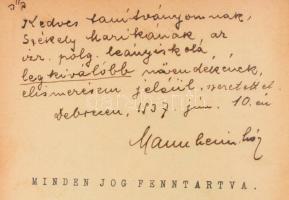 Kedves tanítványomnak,
Székely Marikának, az
izr. polg. leányiskola
legkiválóbb növendékének,
elismerésem jeléül, szeretettel
Debrecen, 1937 jún. 10.-én
MINDEN JOG FENNTARTVA.